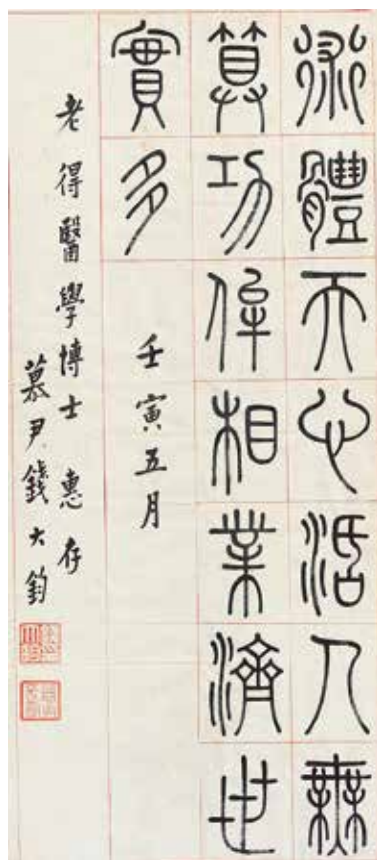 術體天心活人無
算功侔相業濟世
實多
壬寅五月
老得醫學博士惠存
慕尹錢大鈞